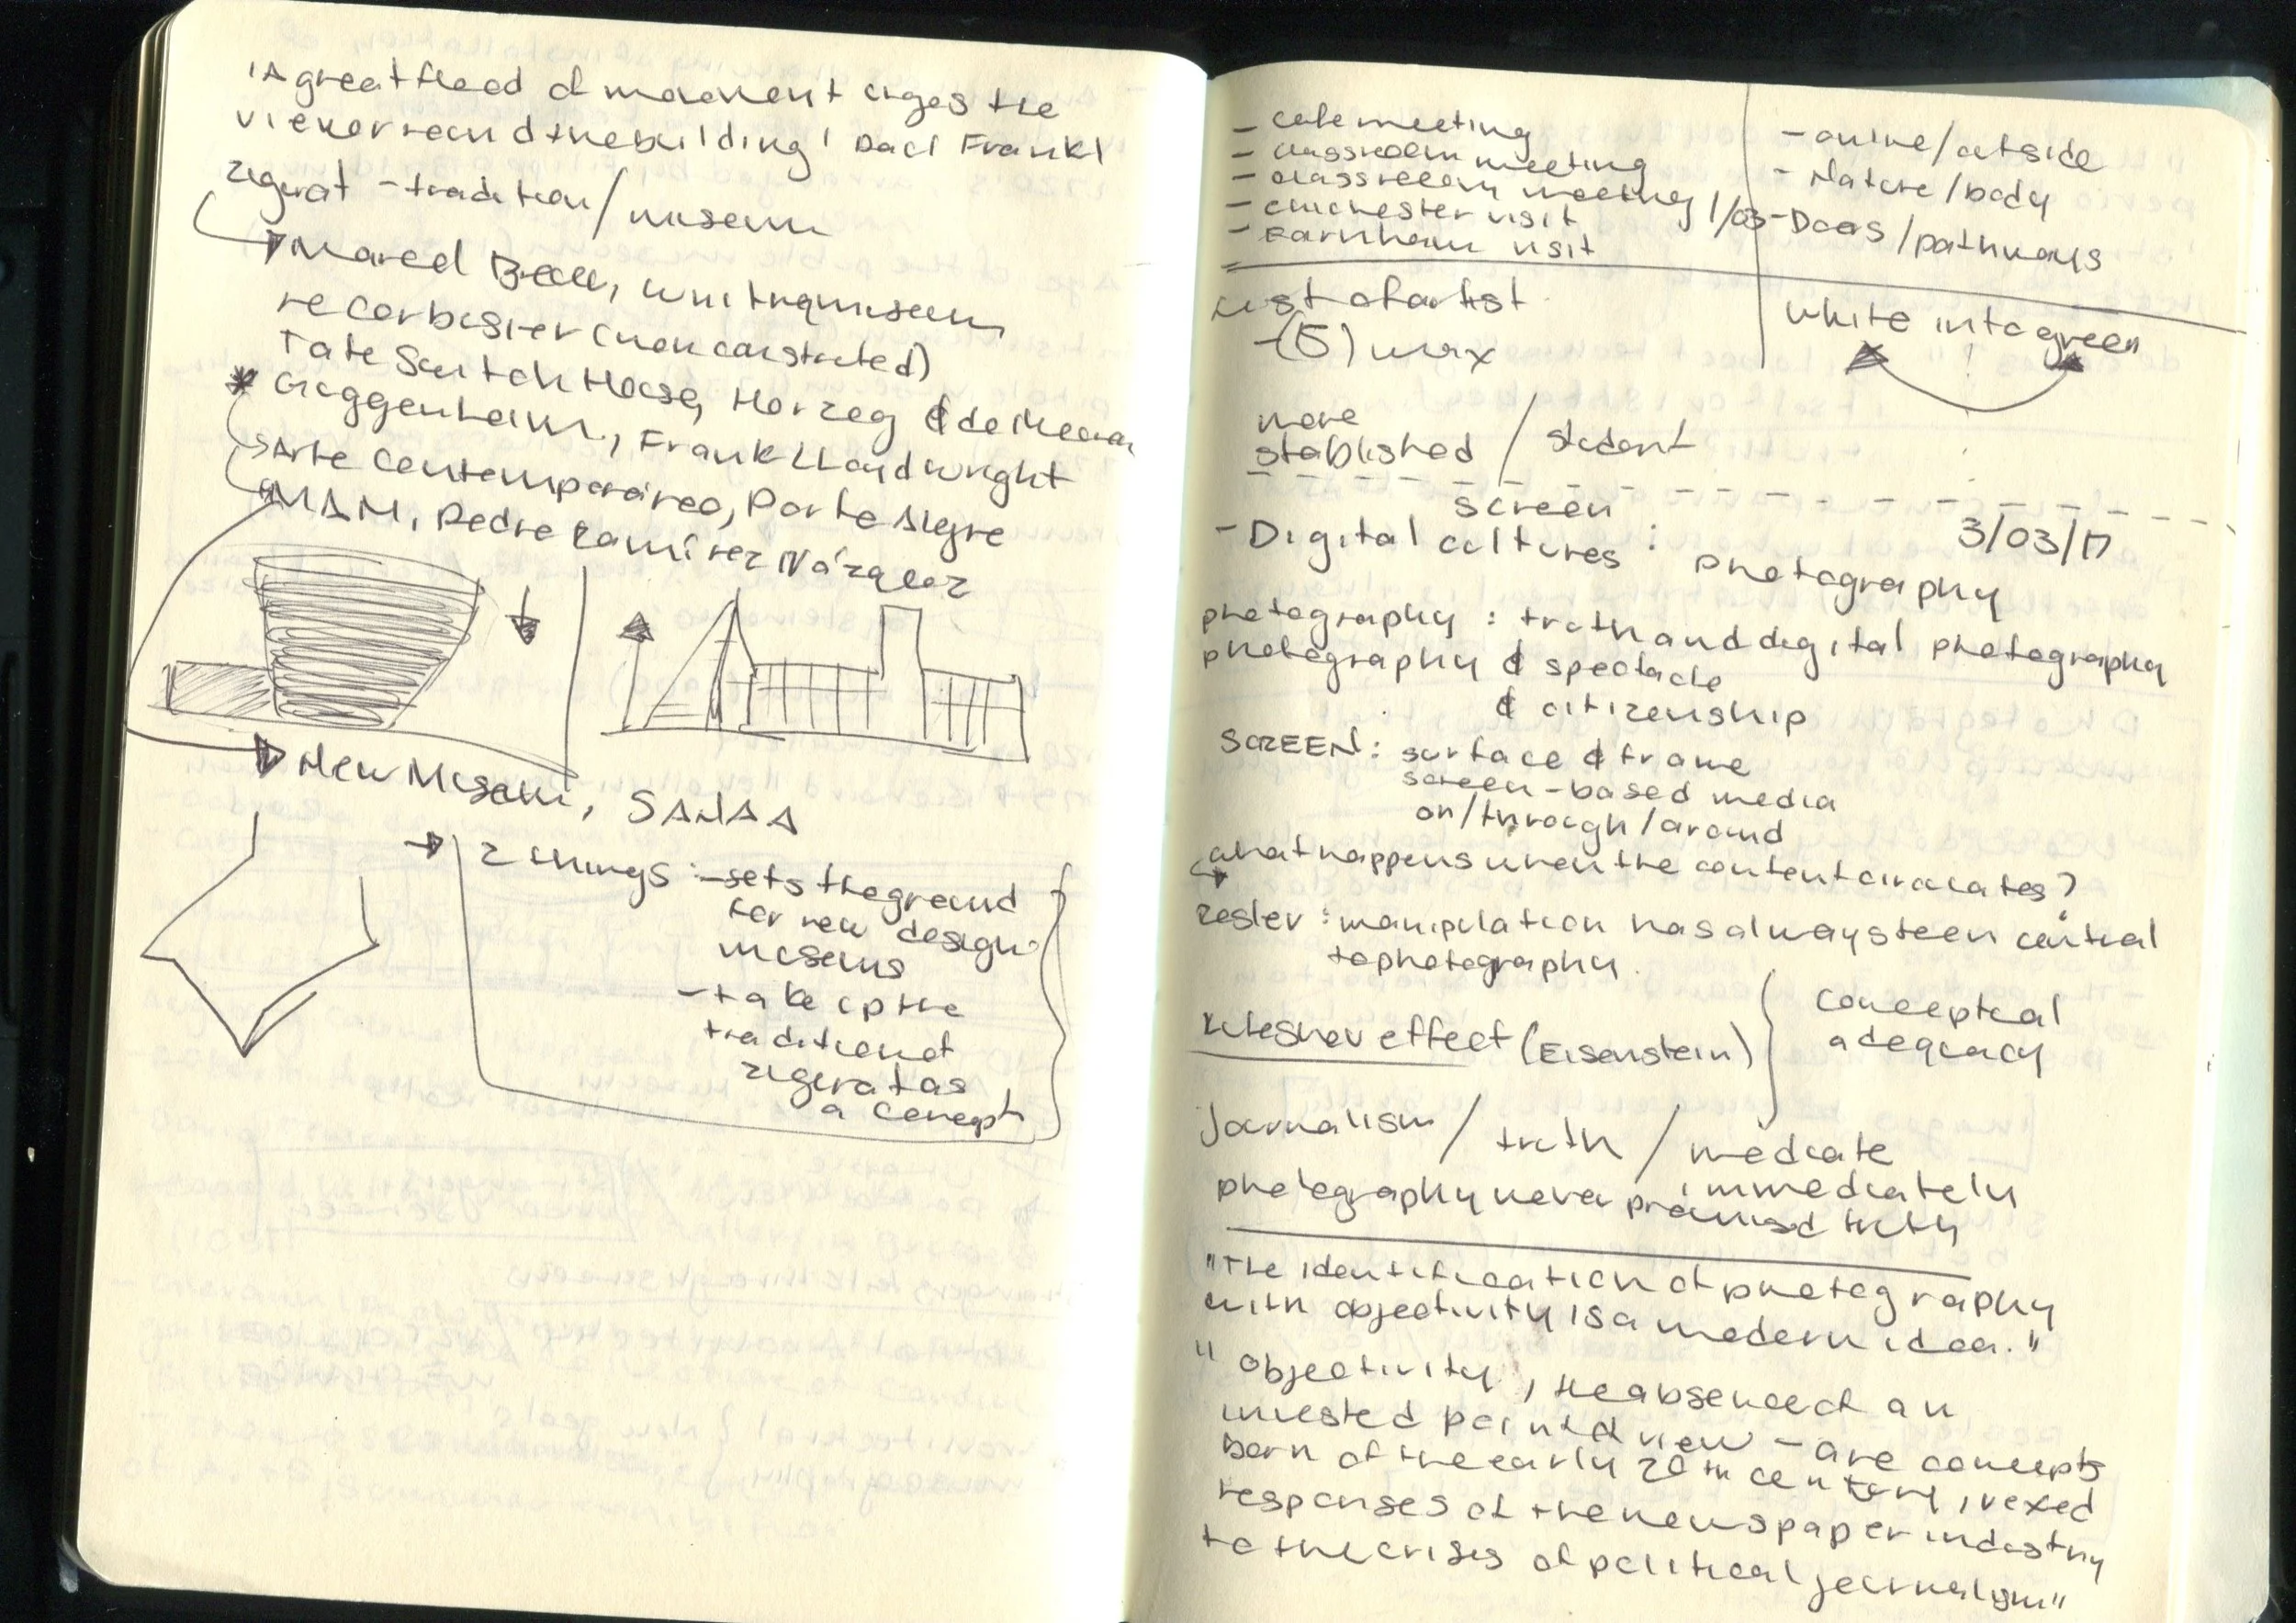 'A great flood of movement urges the
viewer round the building' Paul Frankl
zigurat - tradition / museum
Marcel Breuer, Whitney museum
Le Corbusier (non constructed)
Tate Switch House, Herzog & de Meuron
* Guggenheim, Frank Lloyd Wright
Arte Contemporáneo, Porto Alegre
MAM, Pedro Ramírez Vázquez
New Museum, SANAA
2 things: - sets the ground
for new design
museums
- take up the
traditional
zigurat as
a concept
- cafe meeting
- classroom meeting
- classroom meeting 1/03
- Chichester visit
- Farnham visit
- online/outside
- Nature/body
- Doors/pathways
List of artist
- (5) max
White into green
more
stablished / student
screen
- Digital cultures : photography
3/03/17
photography : truth and digital photography
photography & spectacle
& citizenship
SCREEN: surface & frame
screen-based media
on/through/around
what happens when the content circulates?
Rosler : manipulation has always been central
to photography.
Kuleshov effect (Eisenstein)
conceptual
adequacy
Journalism / truth / mediate
immediately
photography never promised truth
"The identification of photography
with objectivity is a modern idea."
"Objectivity, the absence of an
invested point of view - are concepts
born of the early 20th century, vexed
responses of the newspaper industry
to the crises of political journalism"